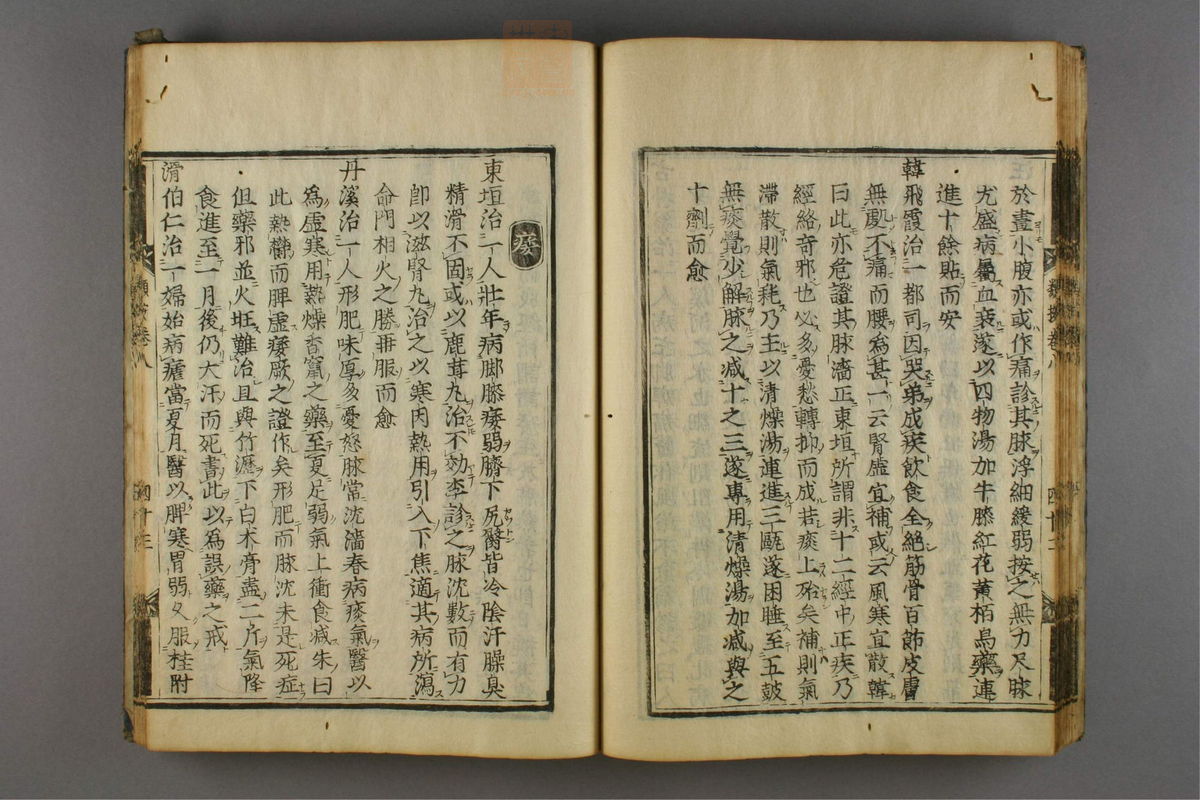 於晝小腹亦或作痛診其脉浮細緩弱按之無力尺脉
尤盛病屬血衰遂以四物湯加牛膝紅花黄栢烏藥連
進十餘貼而安
韓飛霞治一都司因哭弟成疾飲食全絶筋骨百節皮膚
無䖏不痛而腰爲甚一云腎虛宜補或云風寒宜散韓
曰此亦危證其脉濇正東垣所謂非十二經中正疾乃
經絡奇邪也必多憂愁轉抑而成若痰上殆矣補則氣
滯散則氣耗乃主以清燥湯連進三甌遂困睡至五鼓
無痰覺少解脉之减十之三遂專用清燥湯加减與之
十劑而愈
痿
東垣治一人壯年病脚膝痿弱臍下尻臀皆冷陰汗臊臭
精滑不固或以鹿茸丸治不効李診之脉沈數而有力
卽以滋腎丸治之以寒因熱用引入下焦適其病所瀉
命門相火之勝再服而愈
丹溪治一人形肥味厚多憂怒脉當沈濇春病痰氣醫以
爲虛寒用熱燥香竄之藥至夏足弱氣上衝食减朱曰
此熱欝而脾虛痿厥之證作矣形肥而脉沈未是死症
但藥邪並火旺難治且與竹瀝下白术膏盡二斤氣降
食進至一月後仍大汗而死書此以爲誤藥之戒
滑伯仁治一婦始病瘧當夏月醫以脾寒胃弱久服桂附